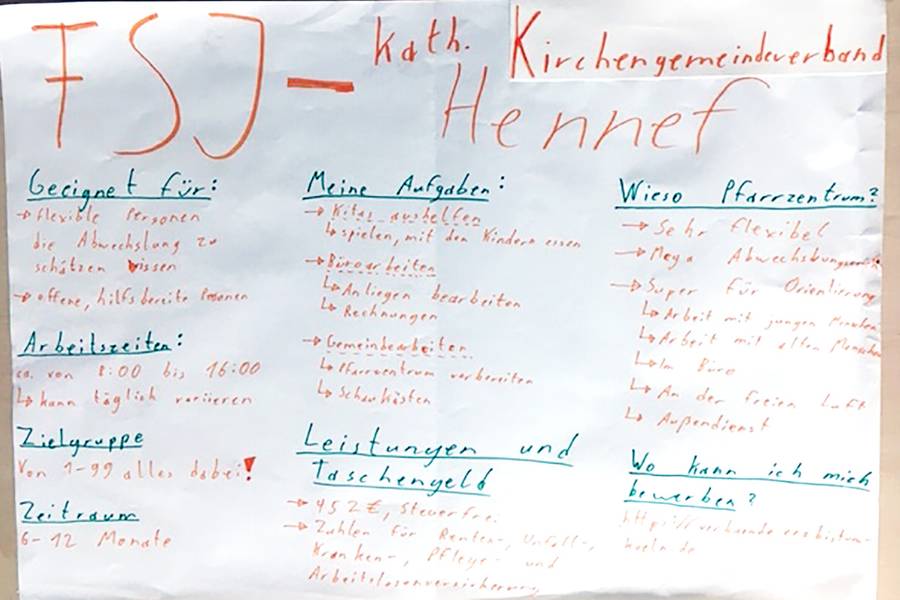 FSJ – Kath. Kirchengemeindeverband
Hennef
Geeignet für:
→ flexible Personen
die Abwechslung zu
schätzen wissen
→ offene, hilfsbereite Personen
Arbeitszeiten:
ca. von 8:00 bis 16:00
↳ kann täglich variieren
Zielgruppe
Von 1-99 alles dabei!
Zeitraum
6-12 Monate
Meine Aufgaben:
→ Kitas aushelfen
↳ spielen, mit den Kindern essen
→ Büroarbeiten
↳ Anliegen bearbeiten
↳ Rechnungen
→ Gemeindearbeiten
↳ Pfarrzentrum vorbereiten
↳ Schaukästen
Leistungen und
Taschengeld
→ 452€, Steuerfrei
→ Zahlen für Renten-, Unfall-,
Kranken-, Pflege- und
Arbeitslosenversicherung
Wieso Pfarrzentrum?
→ Sehr flexibel
→ Mega
→ Super für Orientierung
↳ Arbeit mit jungen Menschen
↳ Arbeit mit alten Menschen
↳ Im Büro
↳ An der freien Luft
↳ Außendienst
Wo kann ich mich
bewerben?